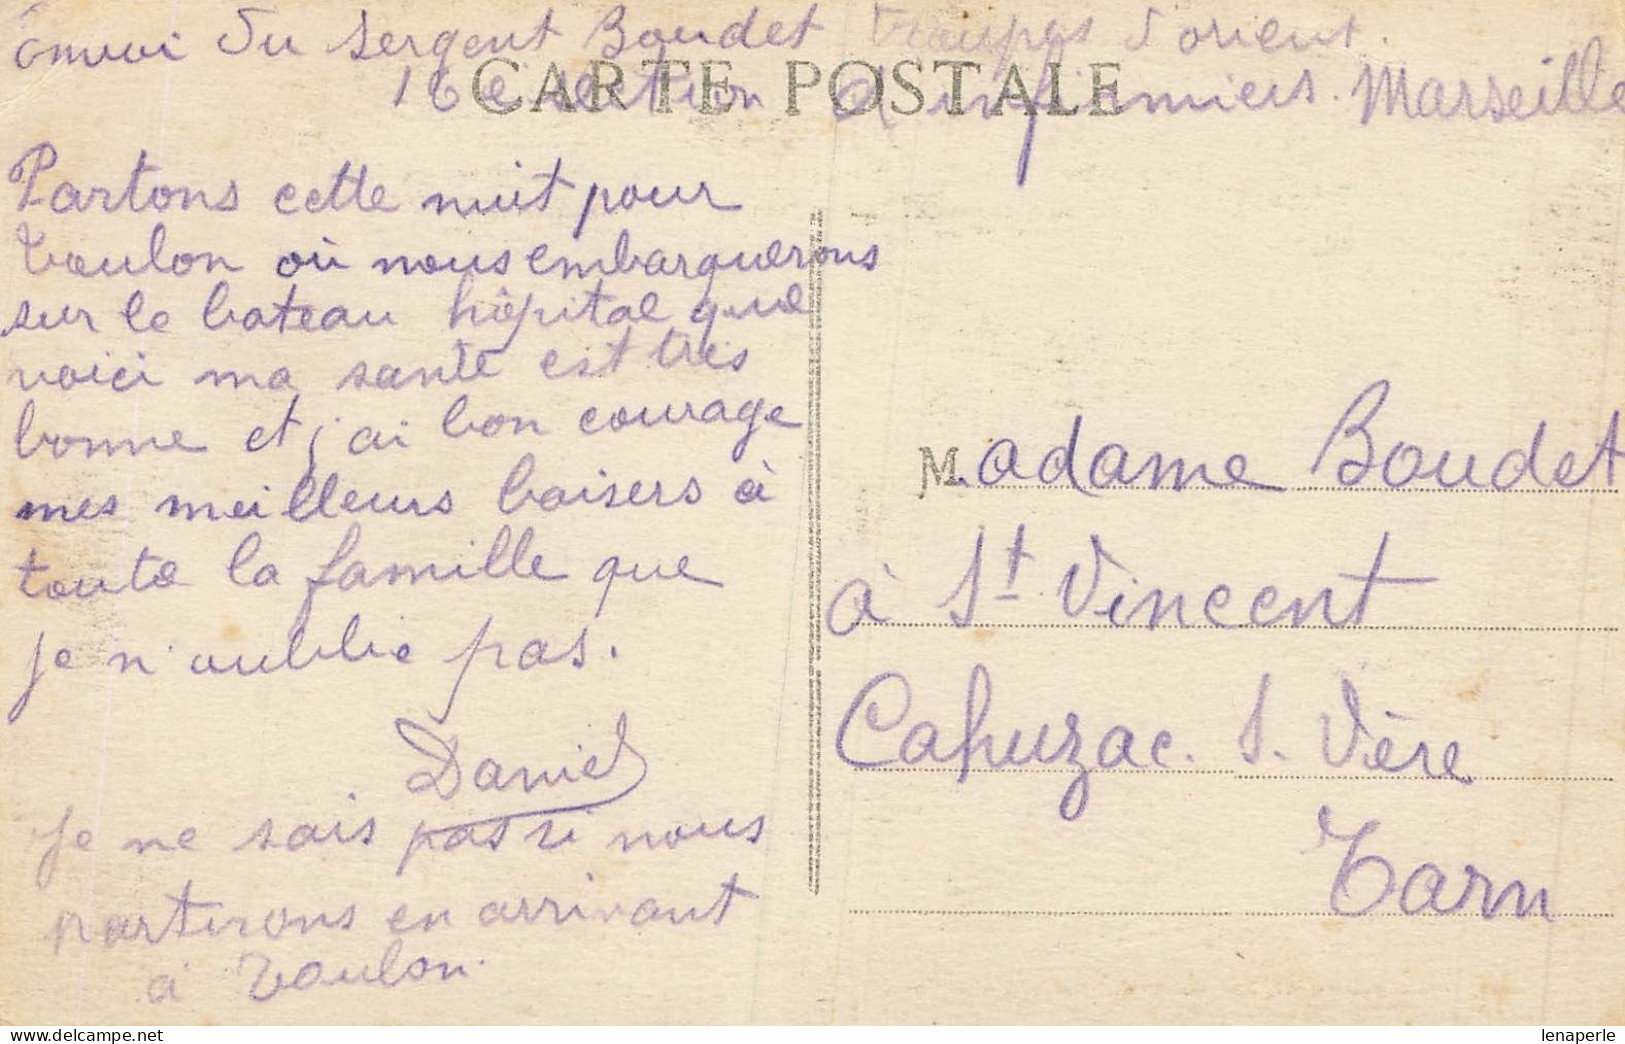 Envoi du Sergent Boudet Troupes d'orient.
16e section d'infirmiers. Marseille
CARTE POSTALE
Partons cette nuit pour
Toulon où nous embarquerons
sur le bateau hôpital que
voici ma santé est très
bonne et j'ai bon courage
mes meilleurs baisers à
toute la famille que
je n'oublie pas.
Daniel
Je ne sais pas si nous
partirons en arrivant
à Toulon.
Madame Boudet
à St Vincent
Cahuzac. S. Vère
Tarn
lenaperle